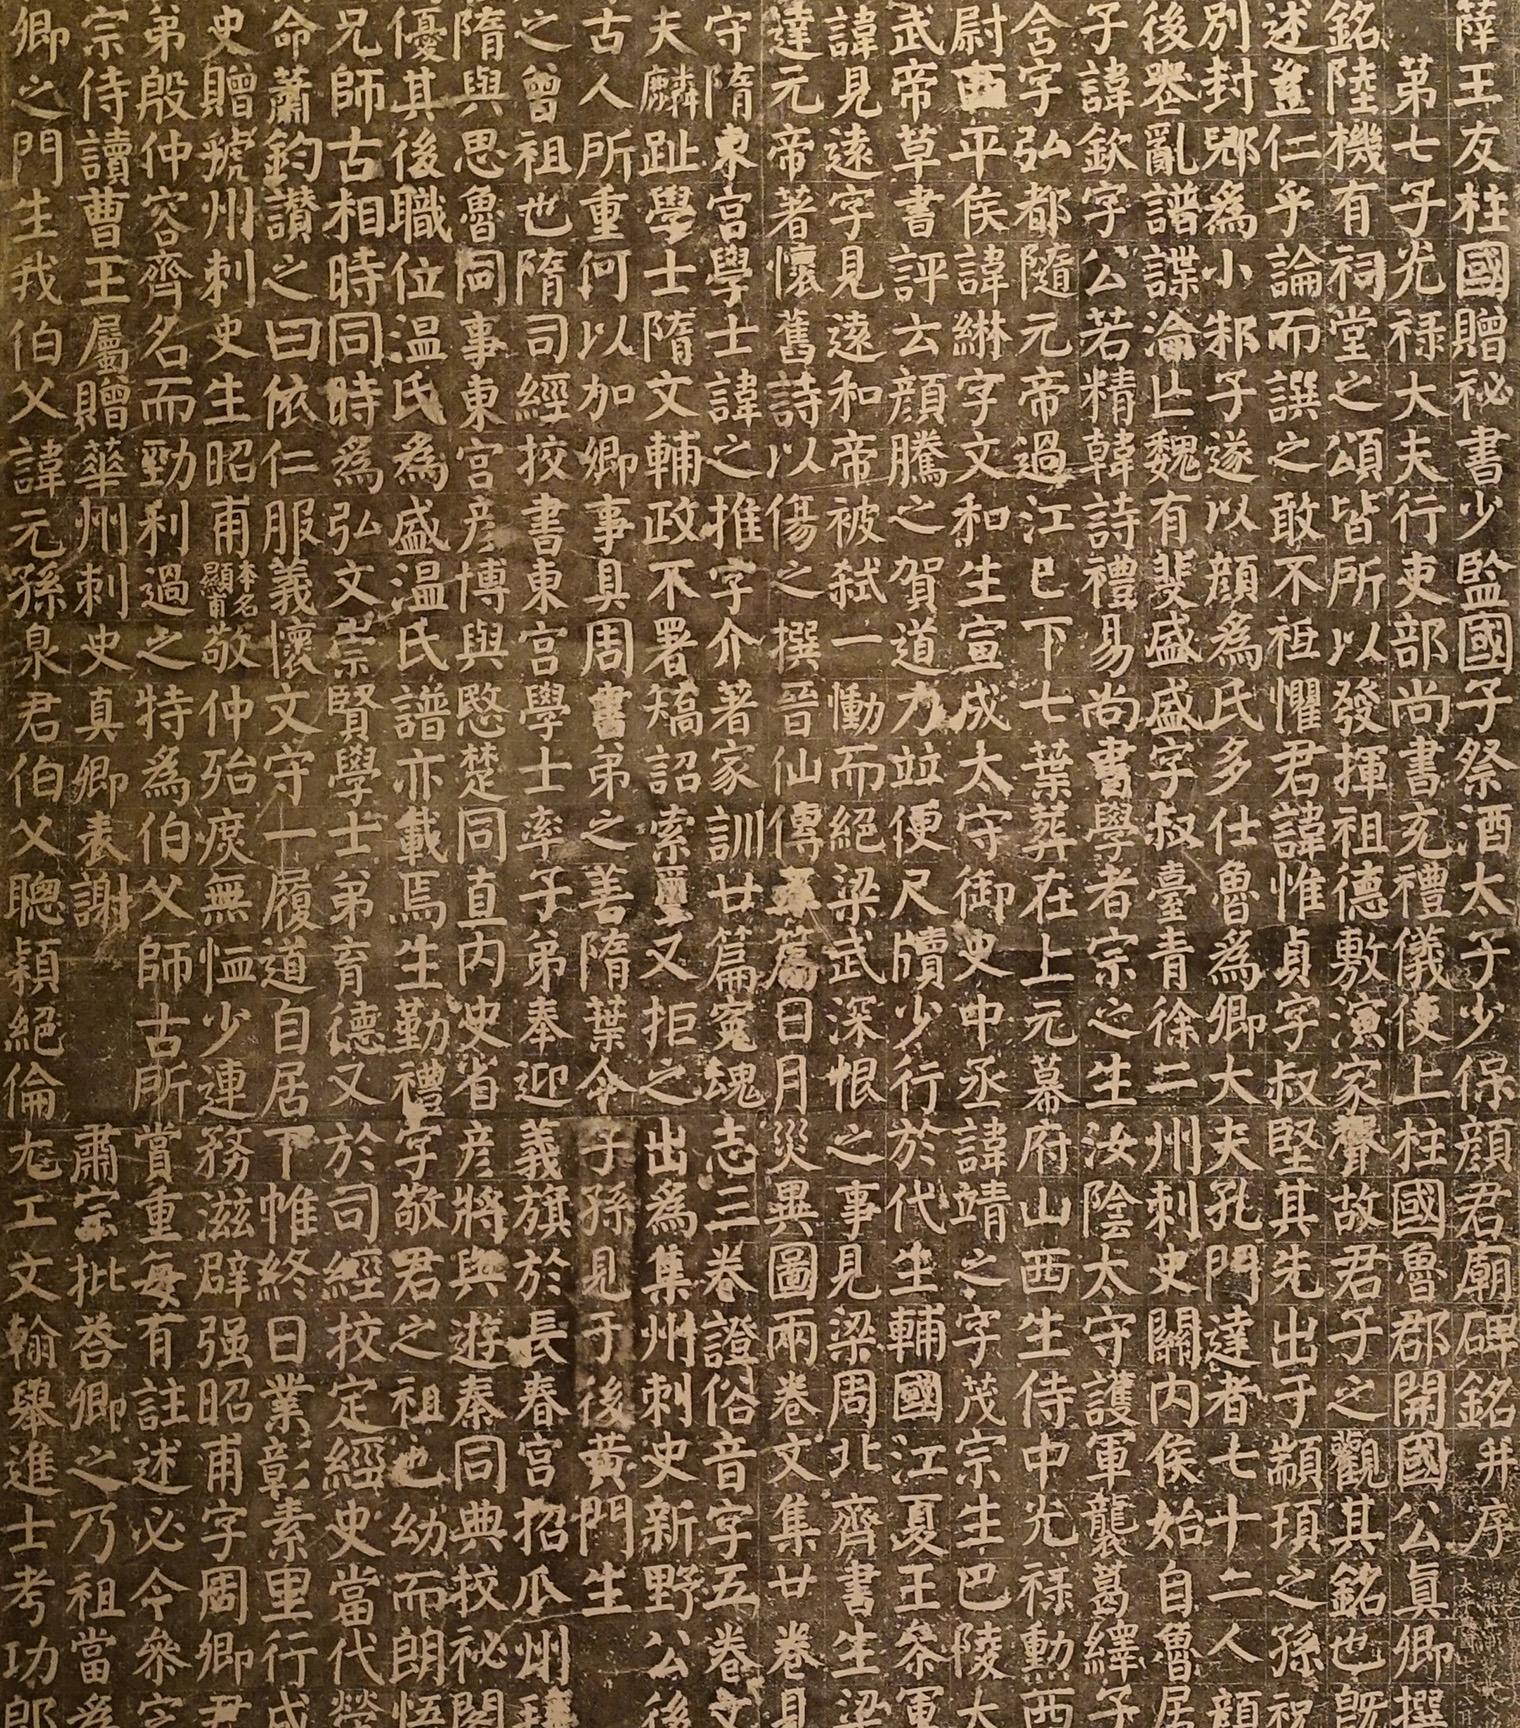 薛王友柱國贈祕書少監國子祭酒太子少保顏君廟碑銘并序
第七子光祿大夫行吏部尚書充禮儀使上柱國魯郡開國公真卿撰
銘陸機有祠堂之頌皆所以發揮祖德敷演家聲故君子之觀其銘也既
述豈仁乎論而譔之敢不祗懼君諱惟貞字叔堅其先出于顓頊之孫祝
別封郳為小邾子遂以顏為氏多仕魯為卿大夫孔門達者七十二人顏
後喪亂譜諜淪亡魏有斐盛盛字叔臺青徐二州刺史關內侯始自魯居
子諱欽字公若精韓詩禮易尚書學者宗之生汝陰太守護軍襲葛繹子
含字弘都隨元帝過江已下七葉葬在上元幕府山西生侍中光祿勳西
尉西平侯諱綝字文和生宣成太守御史中丞諱靖之字茂宗生巴陵太
武帝草書評云顏騰之賀道力並便尺牘少行於代生輔國江夏王參軍
諱見遠字見遠和帝被弒一慟而絕梁武深恨之事見梁周北齊書生梁
達元帝著懷舊詩以傷之撰晉仙傳五篇日月災異圖兩卷文集廿卷見
守隋東宮學士諱之推字介著家訓廿篇冤魂志三卷證俗音字五卷文
夫麟趾學士隋文輔政不署矯詔索璽又拒之出為集州刺史新野公後
古人所重何以加卿事具周書弟之善隋葉令子孫見于後黃門生
之曾祖也隋司經挍書東宮學士率子弟奉迎義旗於長春宮招瓜州拜
隋與思魯同事東宮彥博與愍楚同直內史省彥將與遊秦同典挍祕閣
優其後職位温氏為盛温氏譜亦載焉生勤禮字敬君之祖也幼而朗悟
兄師古相時同時為弘文崇賢學士弟育德又於司經挍定經史當代榮
命蕭鈞讚之曰依仁服義懷文守一履道自居下帷終日業彰素里行成
史贈虢州刺史生昭甫本名顯甫敬仲殆庶無恤少連務滋辟强昭甫字周卿君
弟殷仲容齊名而勁利過之特為伯父師古所賞重每有註述必令參定
宗侍讀曹王屬贈華州刺史真卿表謝 肅宗批荅卿之乃祖當為
卿之門生我伯父諱元孫泉君伯父聰穎絕倫尤工文翰舉進士考功郎